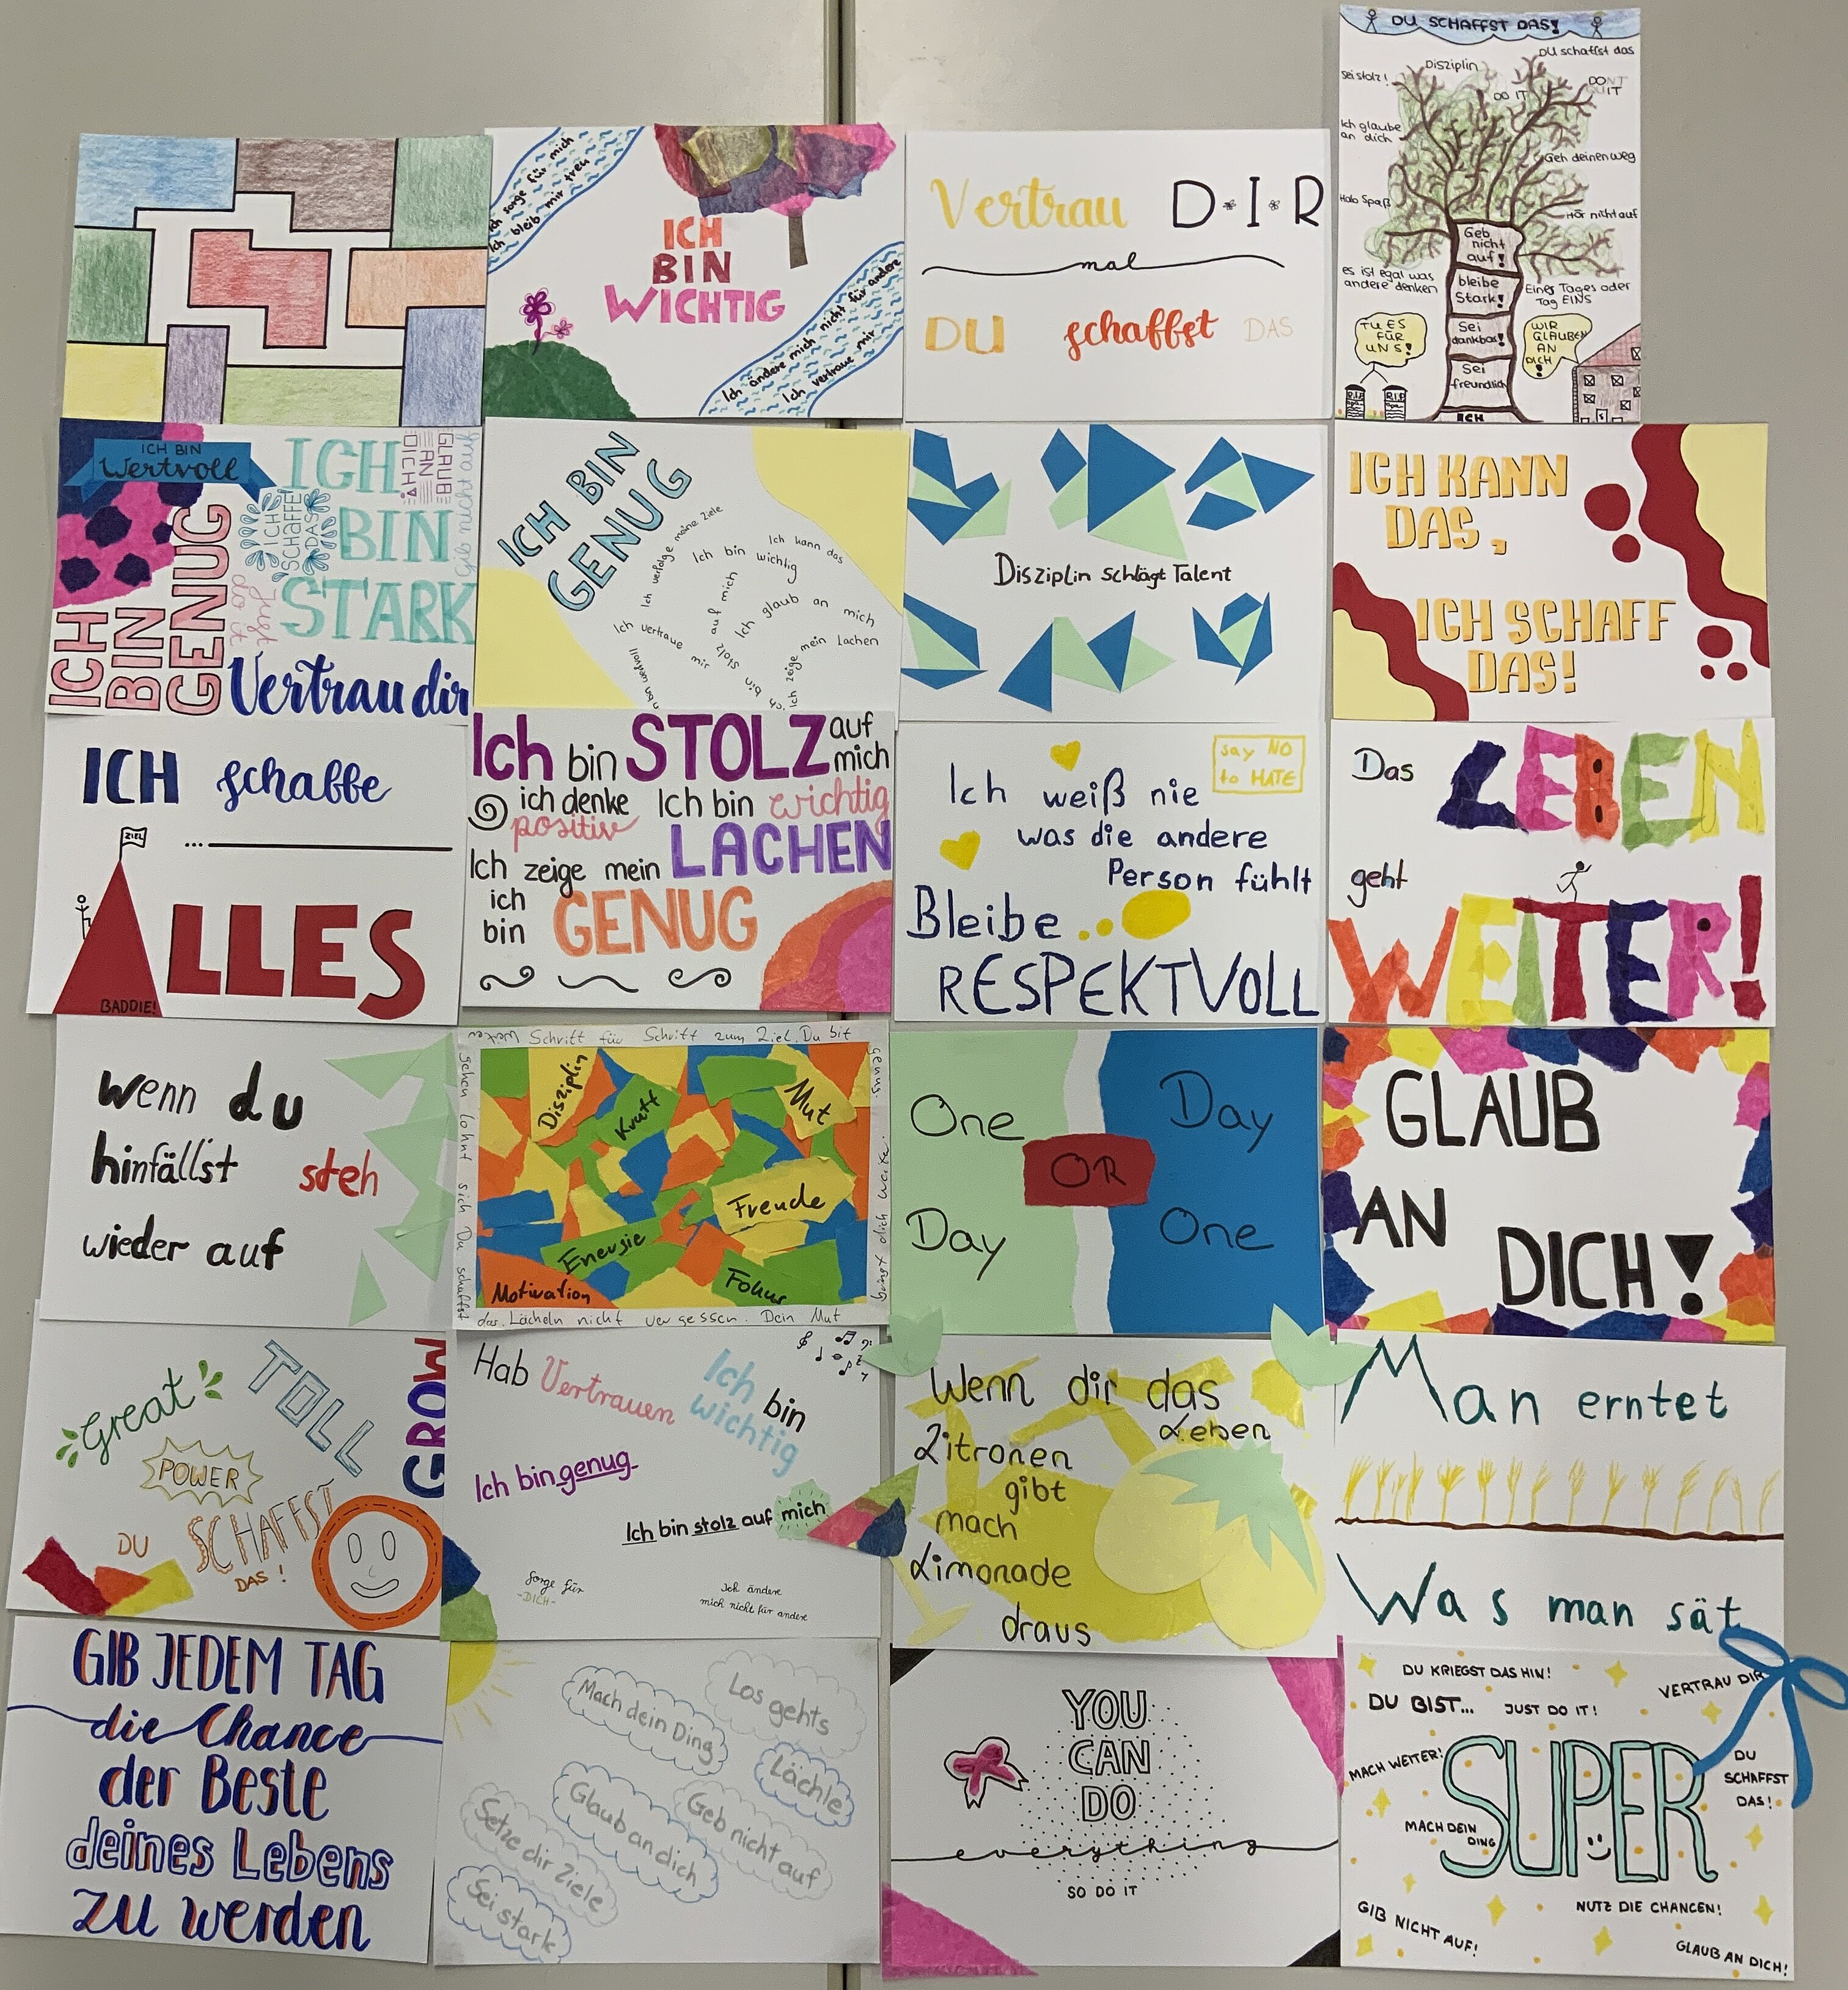 Ich sorge für mich
Ich bleib mir treu
ICH
BIN
WICHTIG
Ich ändere mich nicht für andere
Ich vertraue mir
Vertrau D I R
mal
DU schaffst DAS
DU SCHAFFST DAS!
DU schaffst das
Disziplin
Sei stolz!
DO IT
DON'T
QUIT
Ich glaube
an dich
Geh deinen weg
Hab Spaß
Hör nicht auf
Geb
nicht
auf!
es ist egal was
andere denken
bleibe
Stark!
Eines Tages oder
Tag EINS
TU ES
FÜR
UNS!
Sei
dankbar!
WIR
GLAUBEN
AN
DICH
!
Sei
freundlich
R.I.P
R.I.P
ICH
ICH BIN
Wertvoll
ICH
BIN
STARK
GLAUB
AN
DICH!
Gib nicht auf
ICH
SCHAFFE
DAS
Just
do it
ICH
BIN
GENUG
Vertrau dir
ICH BIN
GENUG
Ich verfolge meine Ziele
Ich bin wichtig
Ich kann das
Ich glaub an mich
Ich vertraue mir
Ich bin stolz auf mich
Ich zeige mein lachen
bin wertvoll
Disziplin schlägt Talent
ICH KANN
DAS,
ICH SCHAFF
DAS!
ICH schaffe
...
ZIEL
ALLES
BADDIE!
Ich bin STOLZ auf
mich
ich denke
positiv
Ich bin wichtig
Ich zeige mein LACHEN
ich
bin GENUG
say NO
to HATE
Ich weiß nie
was die andere
Person fühlt
Bleibe
RESPEKTVOLL
Das LEBEN
geht
WEITER!
wenn du
hinfällst steh
wieder auf
Schritt für Schritt zum Ziel. Du bit
genug.
bringt dich weiter.
das. Lächeln nicht vergessen. Dein Mut
gehen lohnt sich Du schaffst
Disziplin
Kraft
Mut
Freude
Energie
Motivation
Fokus
One
Day
OR
Day
One
GLAUB
AN
DICH!
Great
TOLL
GROW
POWER
DU
SCHAFFST
DAS!
Hab Vertrauen
Ich bin
wichtig
Ich bin genug
Ich bin stolz auf mich
Sorge für
-DICH-
Ich ändere
mich nicht für andere
Wenn dir das
Leben
Zitronen
gibt
mach
Limonade
draus
Man erntet
Was man sät
GIB JEDEM TAG
die Chance
der Beste
deines Lebens
zu werden
Los gehts
Mach dein Ding
Lächle
Glaub an dich
Geb nicht auf
Setze dir Ziele
Sei stark
YOU
CAN
DO
everything
SO DO IT
DU KRIEGST DAS HIN!
VERTRAU DIR
DU BIST...
JUST DO IT!
MACH WEITER!
SUPER
DU
SCHAFFST
DAS!
MACH DEIN
DING
NUTZ DIE CHANCEN!
GIB NICHT AUF!
GLAUB AN DICH!